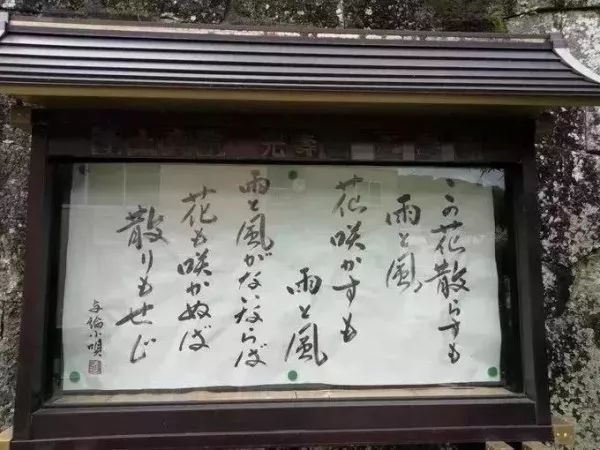 この花散らすも
雨と風
花咲かすも
雨と風
雨と風がないならば
花も咲かぬば
散りもせじ
小唄